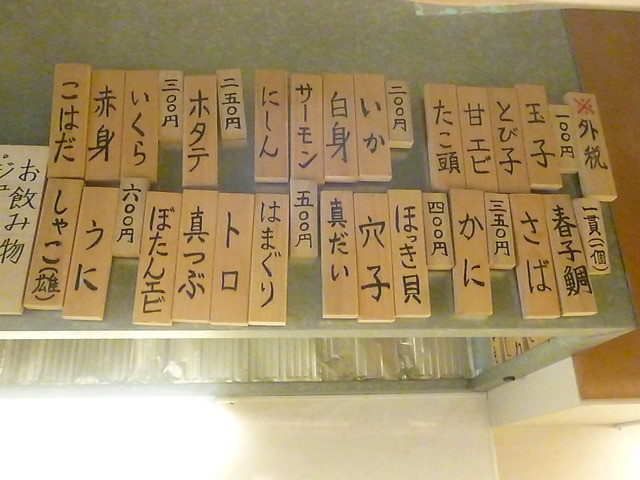 ※外税
一〇〇円
玉子
とび子
甘エビ
たこ頭
二〇〇円
いか
白身
サーモン
にしん
二五〇円
ホタテ
三〇〇円
いくら
赤身
こはだ
一貫(一個)
春子鯛
さば
三五〇円
かに
四〇〇円
ほっき貝
穴子
真だい
五〇〇円
はまぐり
トロ
真つぶ
ぼたんエビ
六〇〇円
うに
しゃこ(雄)
お飲み物
・ジュ